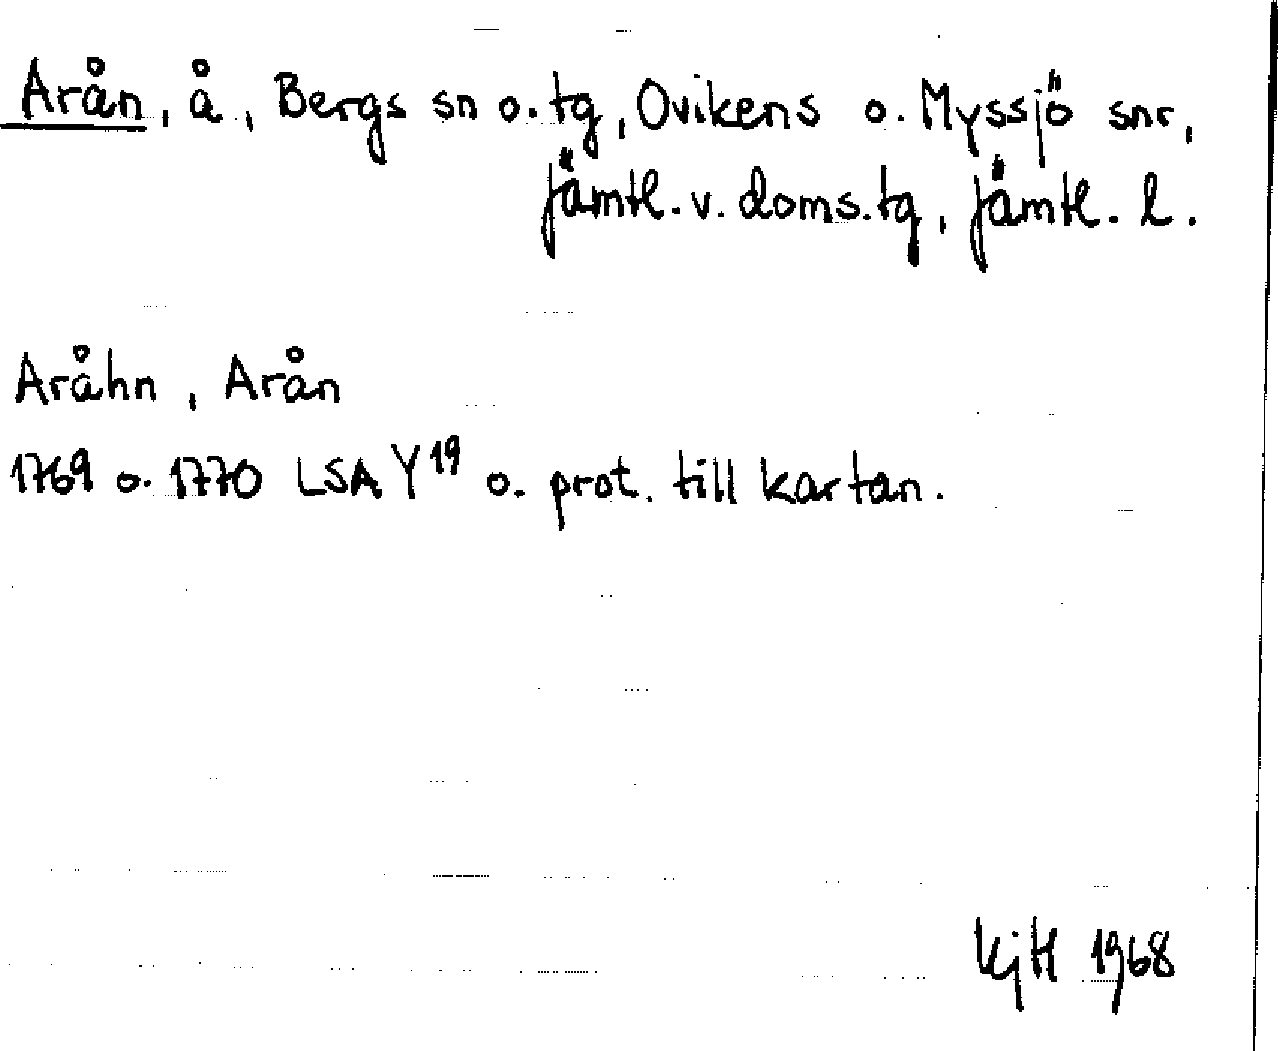 Arån, å, Bergs sn o. tg, Ovikens o. Myssjö snr,
Jämtl. v. doms. tg, Jämtl. l.
Aråhn, Arån
1769 o. 1770 LSA Y19 o. prot. till kartan.
KjH 1968